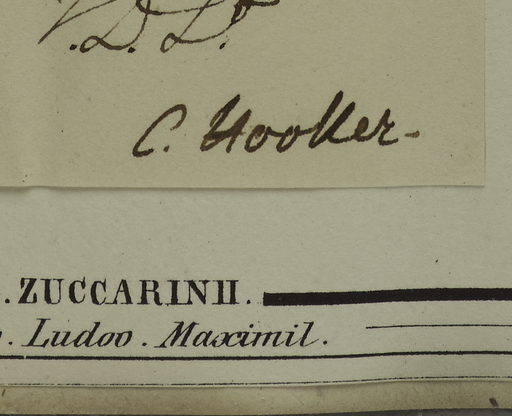 V.D.L.
C. Hooker-
. ZUCCARINII.
. Ludov. Maximil.